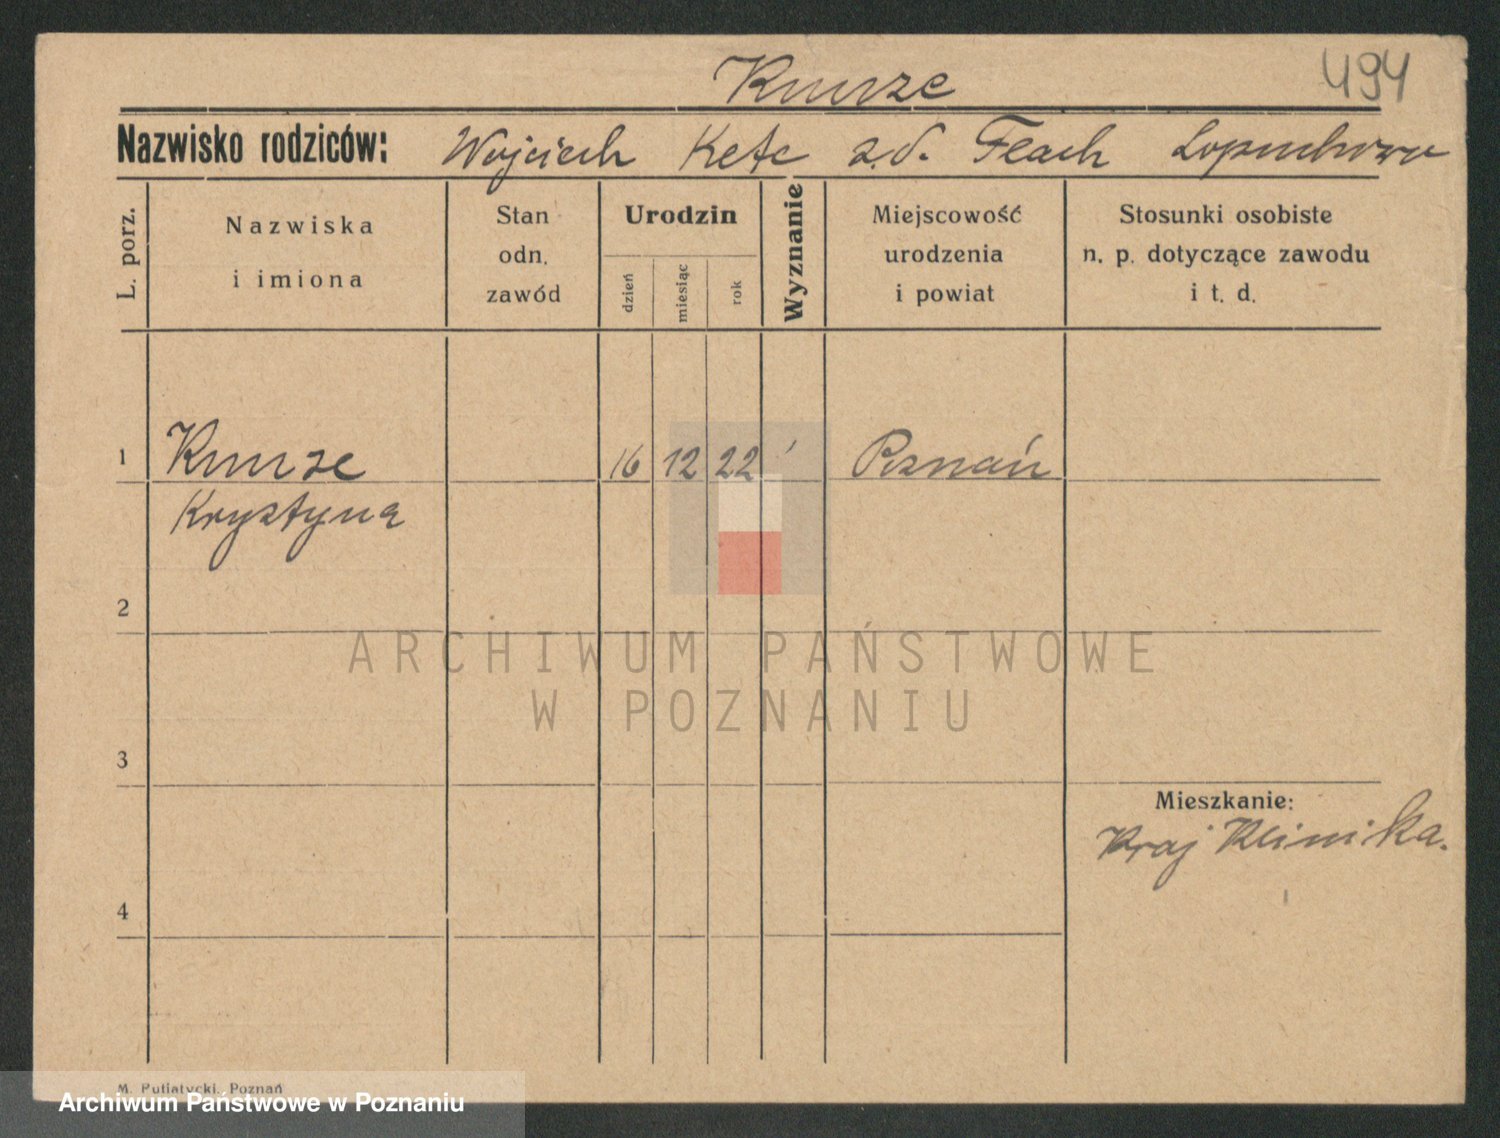 Kunze
494
Nazwisko rodziców: Wojciech Kate z.d. Flach Łopuchowo
L. porz.
Nazwiska
i imiona
Stan
odn.
zawód
Urodzin
dzień
miesiąc
rok
Wyznanie
Miejscowość
urodzenia
i powiat
Stosunki osobiste
n. p. dotyczące zawodu
i t. d.
1 Kunze 16 12 22 Poznań
Krystyna
2
3
4
Mieszkanie:
Kraj Klinika.
ARCHIWUM PAŃSTWOWE
W POZNANIU
M. Putiatycki, Poznań
Archiwum Państwowe w Poznaniu